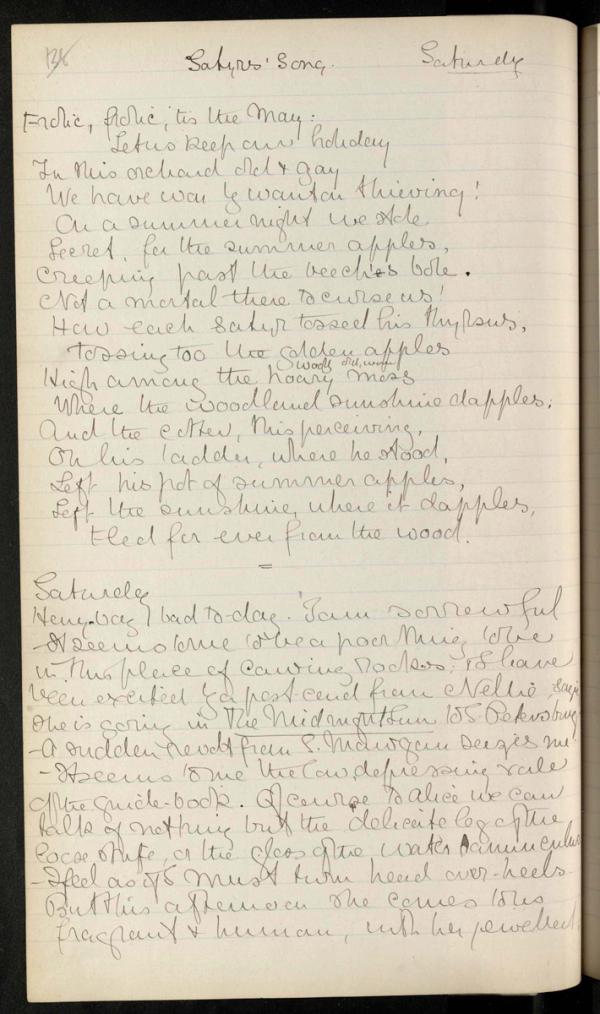 Satyrs' Song. Saturday
Frolic, frolic, 'tis the May:
Let us keep our holiday
In this orchard old & gay
We have won by wanton thieving!
On a summer night we stole
Secret, for the summer apples,
Creeping past the beech's bole.
Not a mortal there to curse us!
How each Satyr tossed his thyrsus,
Tossing too the golden apples
woods old, worn
High among the hoary moss
Where the woodland sunshine dapples;
And the, this perceiving,
On his ladder, where he stood,
Left his pot of summer apples,
Left the sunshine, where it dapples,
Fled for ever from the wood.
=
Saturday
Henry bag I bad to-day. I am sorrowful
– It seems to me to be a poor thing to be
in this place of cawing rooks; & to have
been excited by a post-card from Nellie, saying
she is going in The Midnight Sun to S. Petersburg
– A sudden revolt from S. Mawgan seizes me.
– It seems to me the low, depressing vale
of the guide-book. Of course to Alice we can
talk of nothing but the delicate leg of the
strife, or the class of the water Ranunculus
– I feel as if I must turn head over-heels –
But this afternoon she comes to us
fragrant & human, with her jewelled